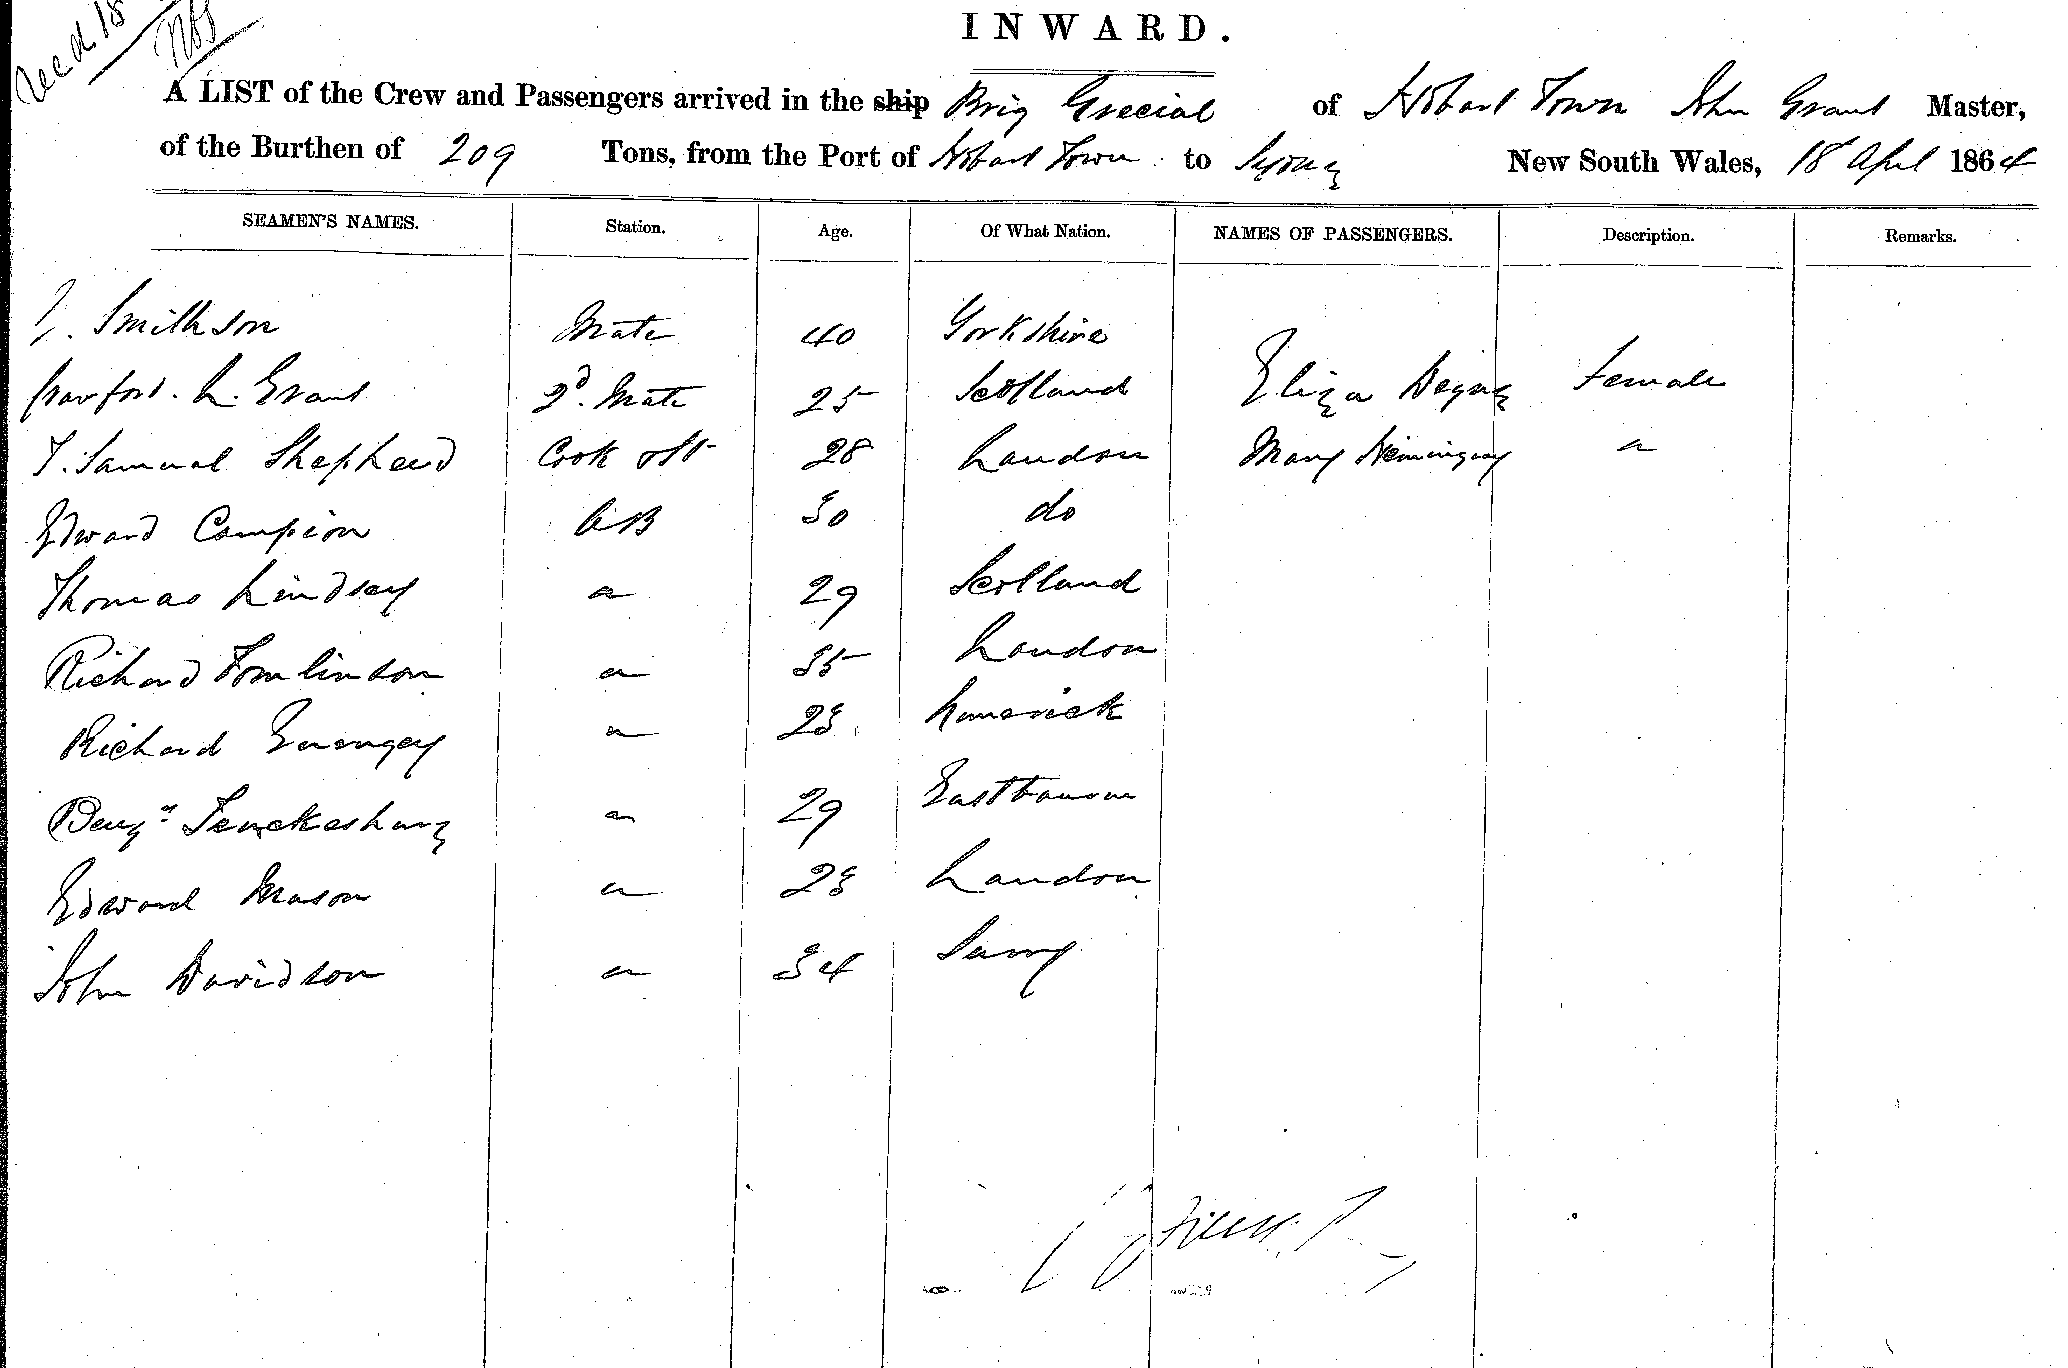 Recd 18
INWARD.
A LIST of the Crew and Passengers arrived in the ship Brig Grecial of Hobart Town John Grant Master,
of the Burthen of 209 Tons, from the Port of Hobart Town to Sydney New South Wales, 18 April 1864
SEAMEN'S NAMES. Station. Age. Of What Nation. NAMES OF PASSENGERS. Description. Remarks.
Smithson Mate 40 Yorkshire
Crawford. L. Grant 2d. Mate 25 Scotland Eliza Female
T. Samual Shepherd Cook 28 London Mary Hemingway "
Edward Campion AB 30 do
Thomas Lindsay " 29 Scotland
Richard Tomlinson " 35 London
Richard " 23 Limerick
Benjn Teuckesbury " 29
Edward Mason " 23 London
John Davidson " 34